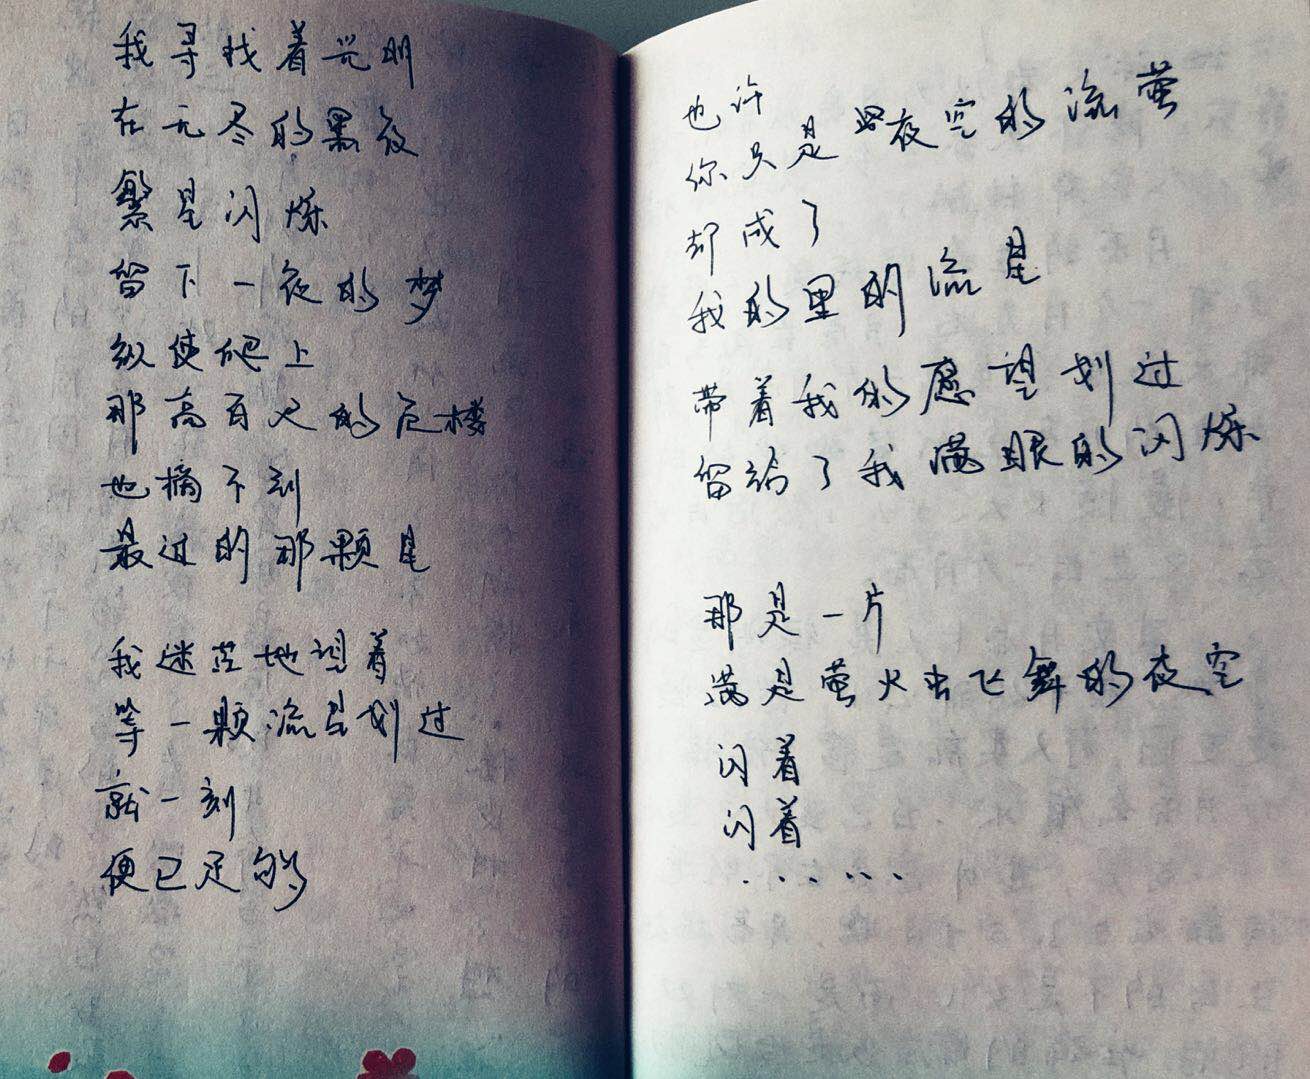 我寻找着光明
在无尽的黑夜
繁星闪烁
留下一夜的梦
纵使爬上
那高百尺的危楼
也摘不到
最过的那颗星
我迷茫地望着
等一颗流星划过
就一刻
便已足够
也许
你只是夜空的流萤
却成了
我的里的流星
带着我的愿望划过
留给了我满眼的闪烁
那是一片
满是萤火虫飞舞的夜空
闪着
闪着
······